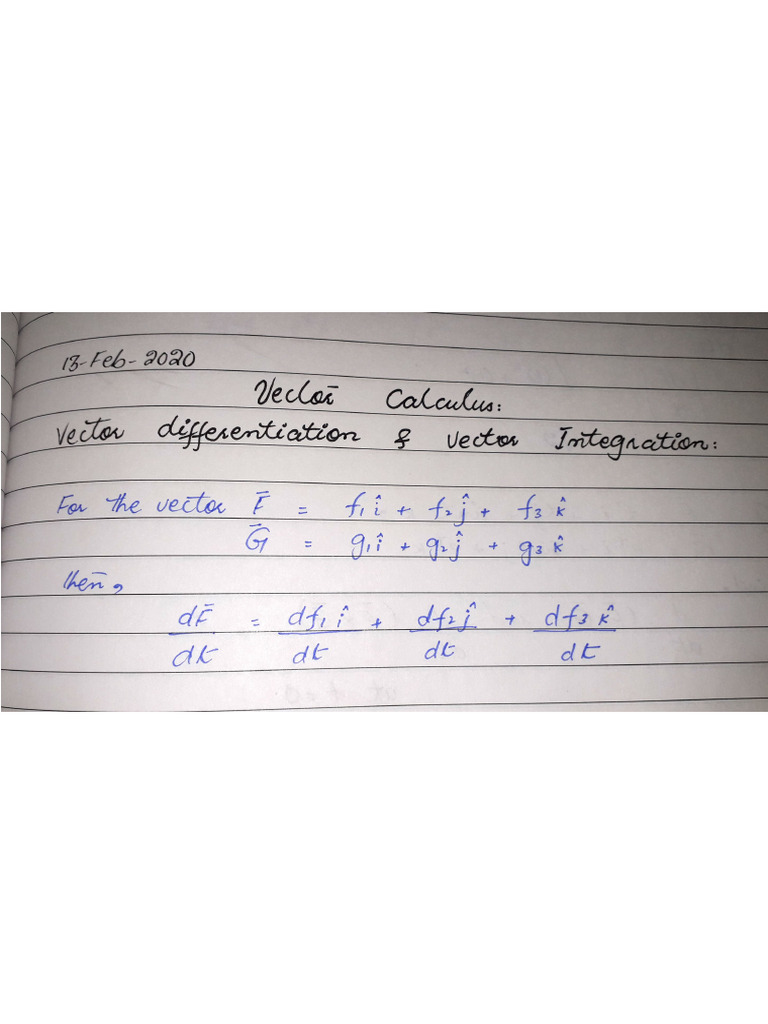 13-Feb-2020
Vector Calculus:
Vector differentiation & vector Integration:
For the vector F̄ = f₁î + f₂ĵ + f₃ k̂
Ḡ = g₁î + g₂ĵ + g₃ k̂
then,
dF̄/dt = df₁ î/dt + df₂ ĵ/dt + df₃ k̂/dt